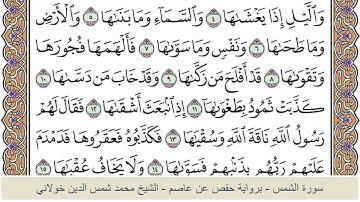 وَٱلَّيْلِ إِذَا يَغْشَىٰهَا ٤ وَٱلسَّمَآءِ وَمَا بَنَىٰهَا ٥ وَٱلْأَرْضِ
وَمَا طَحَىٰهَا ٦ وَنَفْسٍ وَمَا سَوَّىٰهَا ٧ فَأَلْهَمَهَا فُجُورَهَا
وَتَقْوَىٰهَا ٨ قَدْ أَفْلَحَ مَن زَكَّىٰهَا ٩ وَقَدْ خَابَ مَن دَسَّىٰهَا ١٠
كَذَّبَتْ ثَمُودُ بِطَغْوَىٰهَآ ١١ إِذِ ٱنۢبَعَثَ أَشْقَىٰهَا ١٢ فَقَالَ لَهُمْ
رَسُولُ ٱللَّهِ نَاقَةَ ٱللَّهِ وَسُقْيَٰهَا ١٣ فَكَذَّبُوهُ فَعَقَرُوهَا فَدَمْدَمَ
عَلَيْهِمْ رَبُّهُم بِذَنۢبِهِمْ فَسَوَّىٰهَا ١٤ وَلَا يَخَافُ عُقْبَٰهَا ١٥
سورة الشمس - برواية حفص عن عاصم - الشيخ محمد شمس الدين خولاني